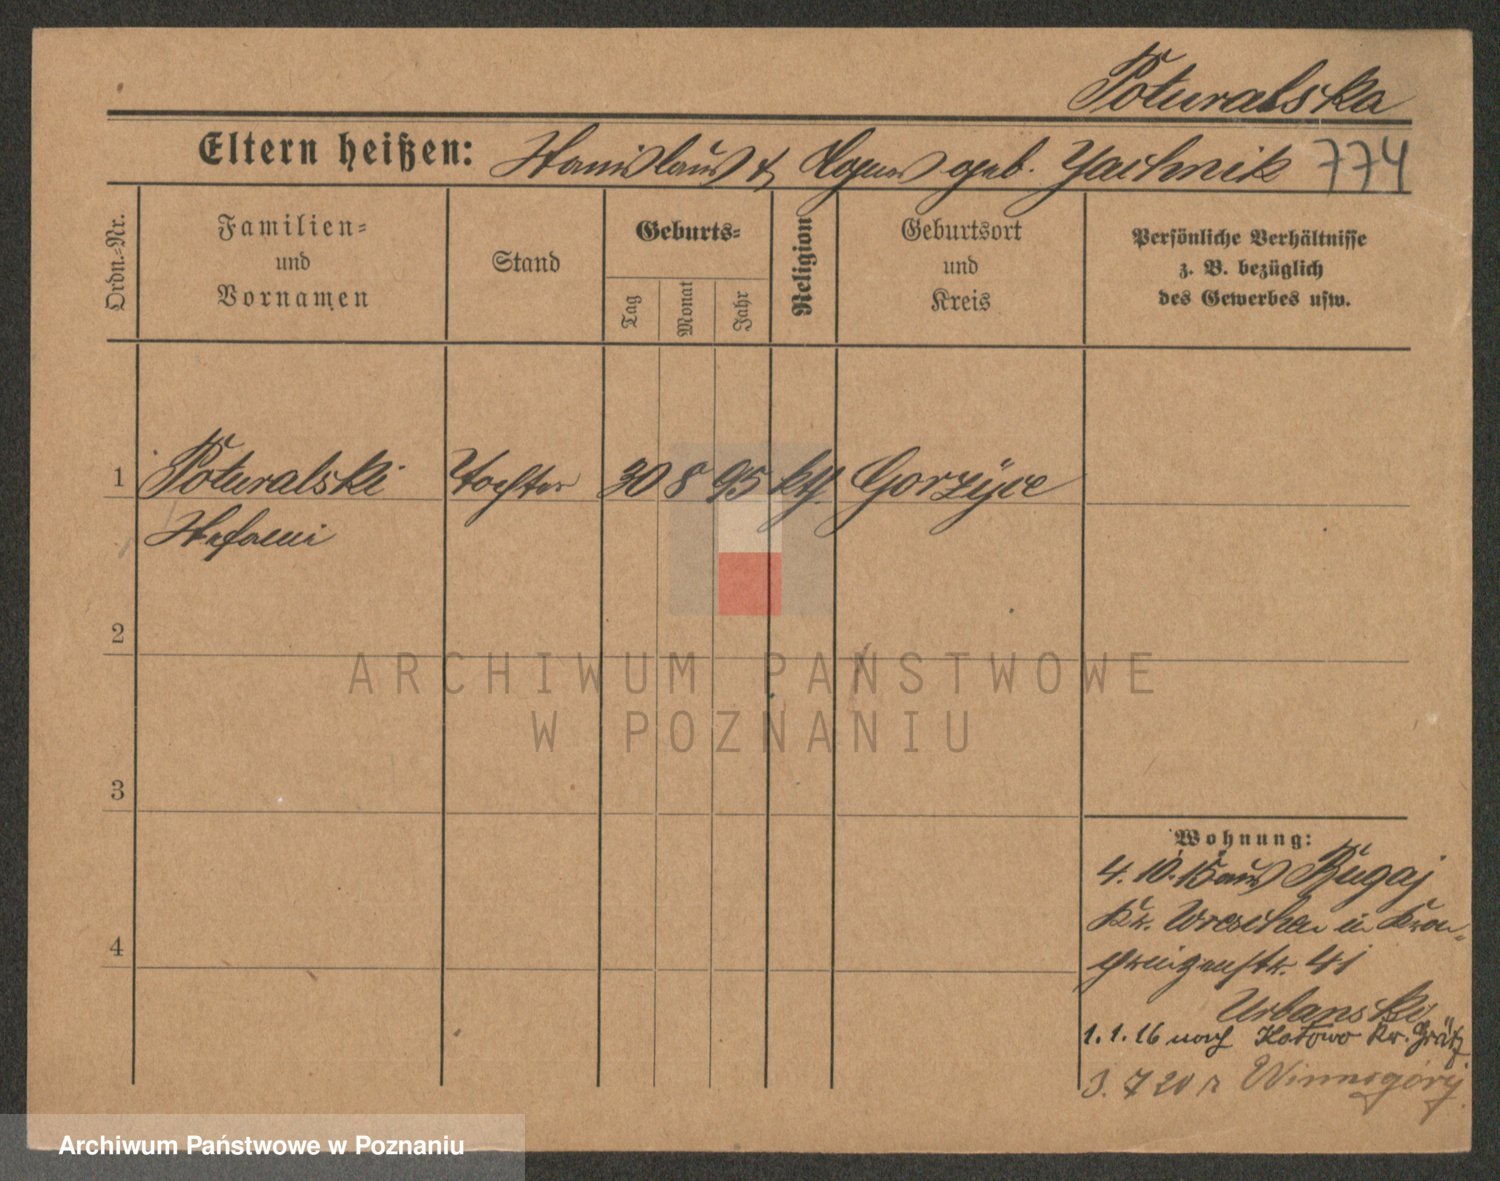 Poturalska
Eltern heißen: Stanislaus & Agnes geb. Jachnik 774
Ordn.=Nr.
Familien=
und
Vornamen
Stand
Geburts=
Tag
Monat
Jahr
Religion
Geburtsort
und
Kreis
Persönliche Verhältnisse
z. B. bezüglich
des Gewerbes usw.
1 Poturalski Tochter 30 8 95 kth. Gorzyce
Stefani
2
ARCHIWUM PAŃSTWOWE
W POZNANIU
3
Wohnung:
4. 10. 15 aus Bugaj
Kr. Wreschen in Kron-
prinzenstr. 41
Urbanski
4
1. 1. 16 nach Kotowo Kr. Grätz
3. 7 20 n Winnogóry
Archiwum Państwowe w Poznaniu